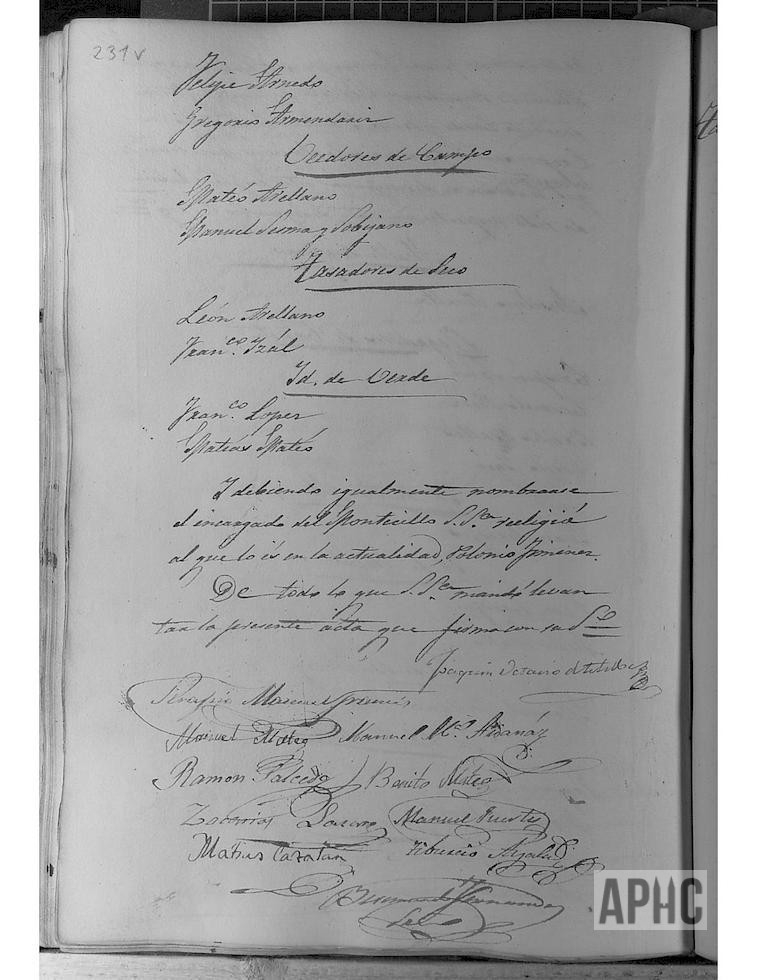 231v
Felipe Arnedo
Gregorio Armendariz
Veedores de Campo
Mateo Arellano
Manuel Sesma y Sobejano
Tasadores de Seco
León Arellano
Fran.co Izal
Id. de Verde
Fran.co Lopez
Matias Mateo
Y debiendo igualmente nombrarse
el encargado del Montecillo S.Sª. reeligió
al que lo és en la actualidad, Polonio Jimenez.
De todo lo que S.Sª. mandó levan
tar la presente acta que firma con su Sº
Joaquin Octavio de
Serafin Manuel
Manuel Mateo Manuel Mª. Aldanáz
Ramon Salcedo Benito Mateo
Zacarias Lazaro Manuel Fuertes
Matias Catalan Tiburcio Ayala
Hernandez
APHC